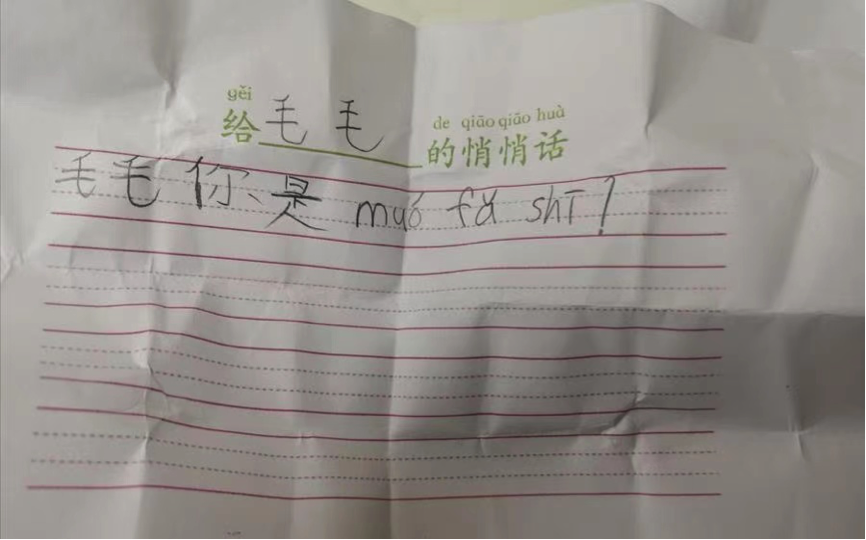 gěi de qiāo qiāo huà
给毛毛的悄悄话
毛毛你是 muó fǎ shī?